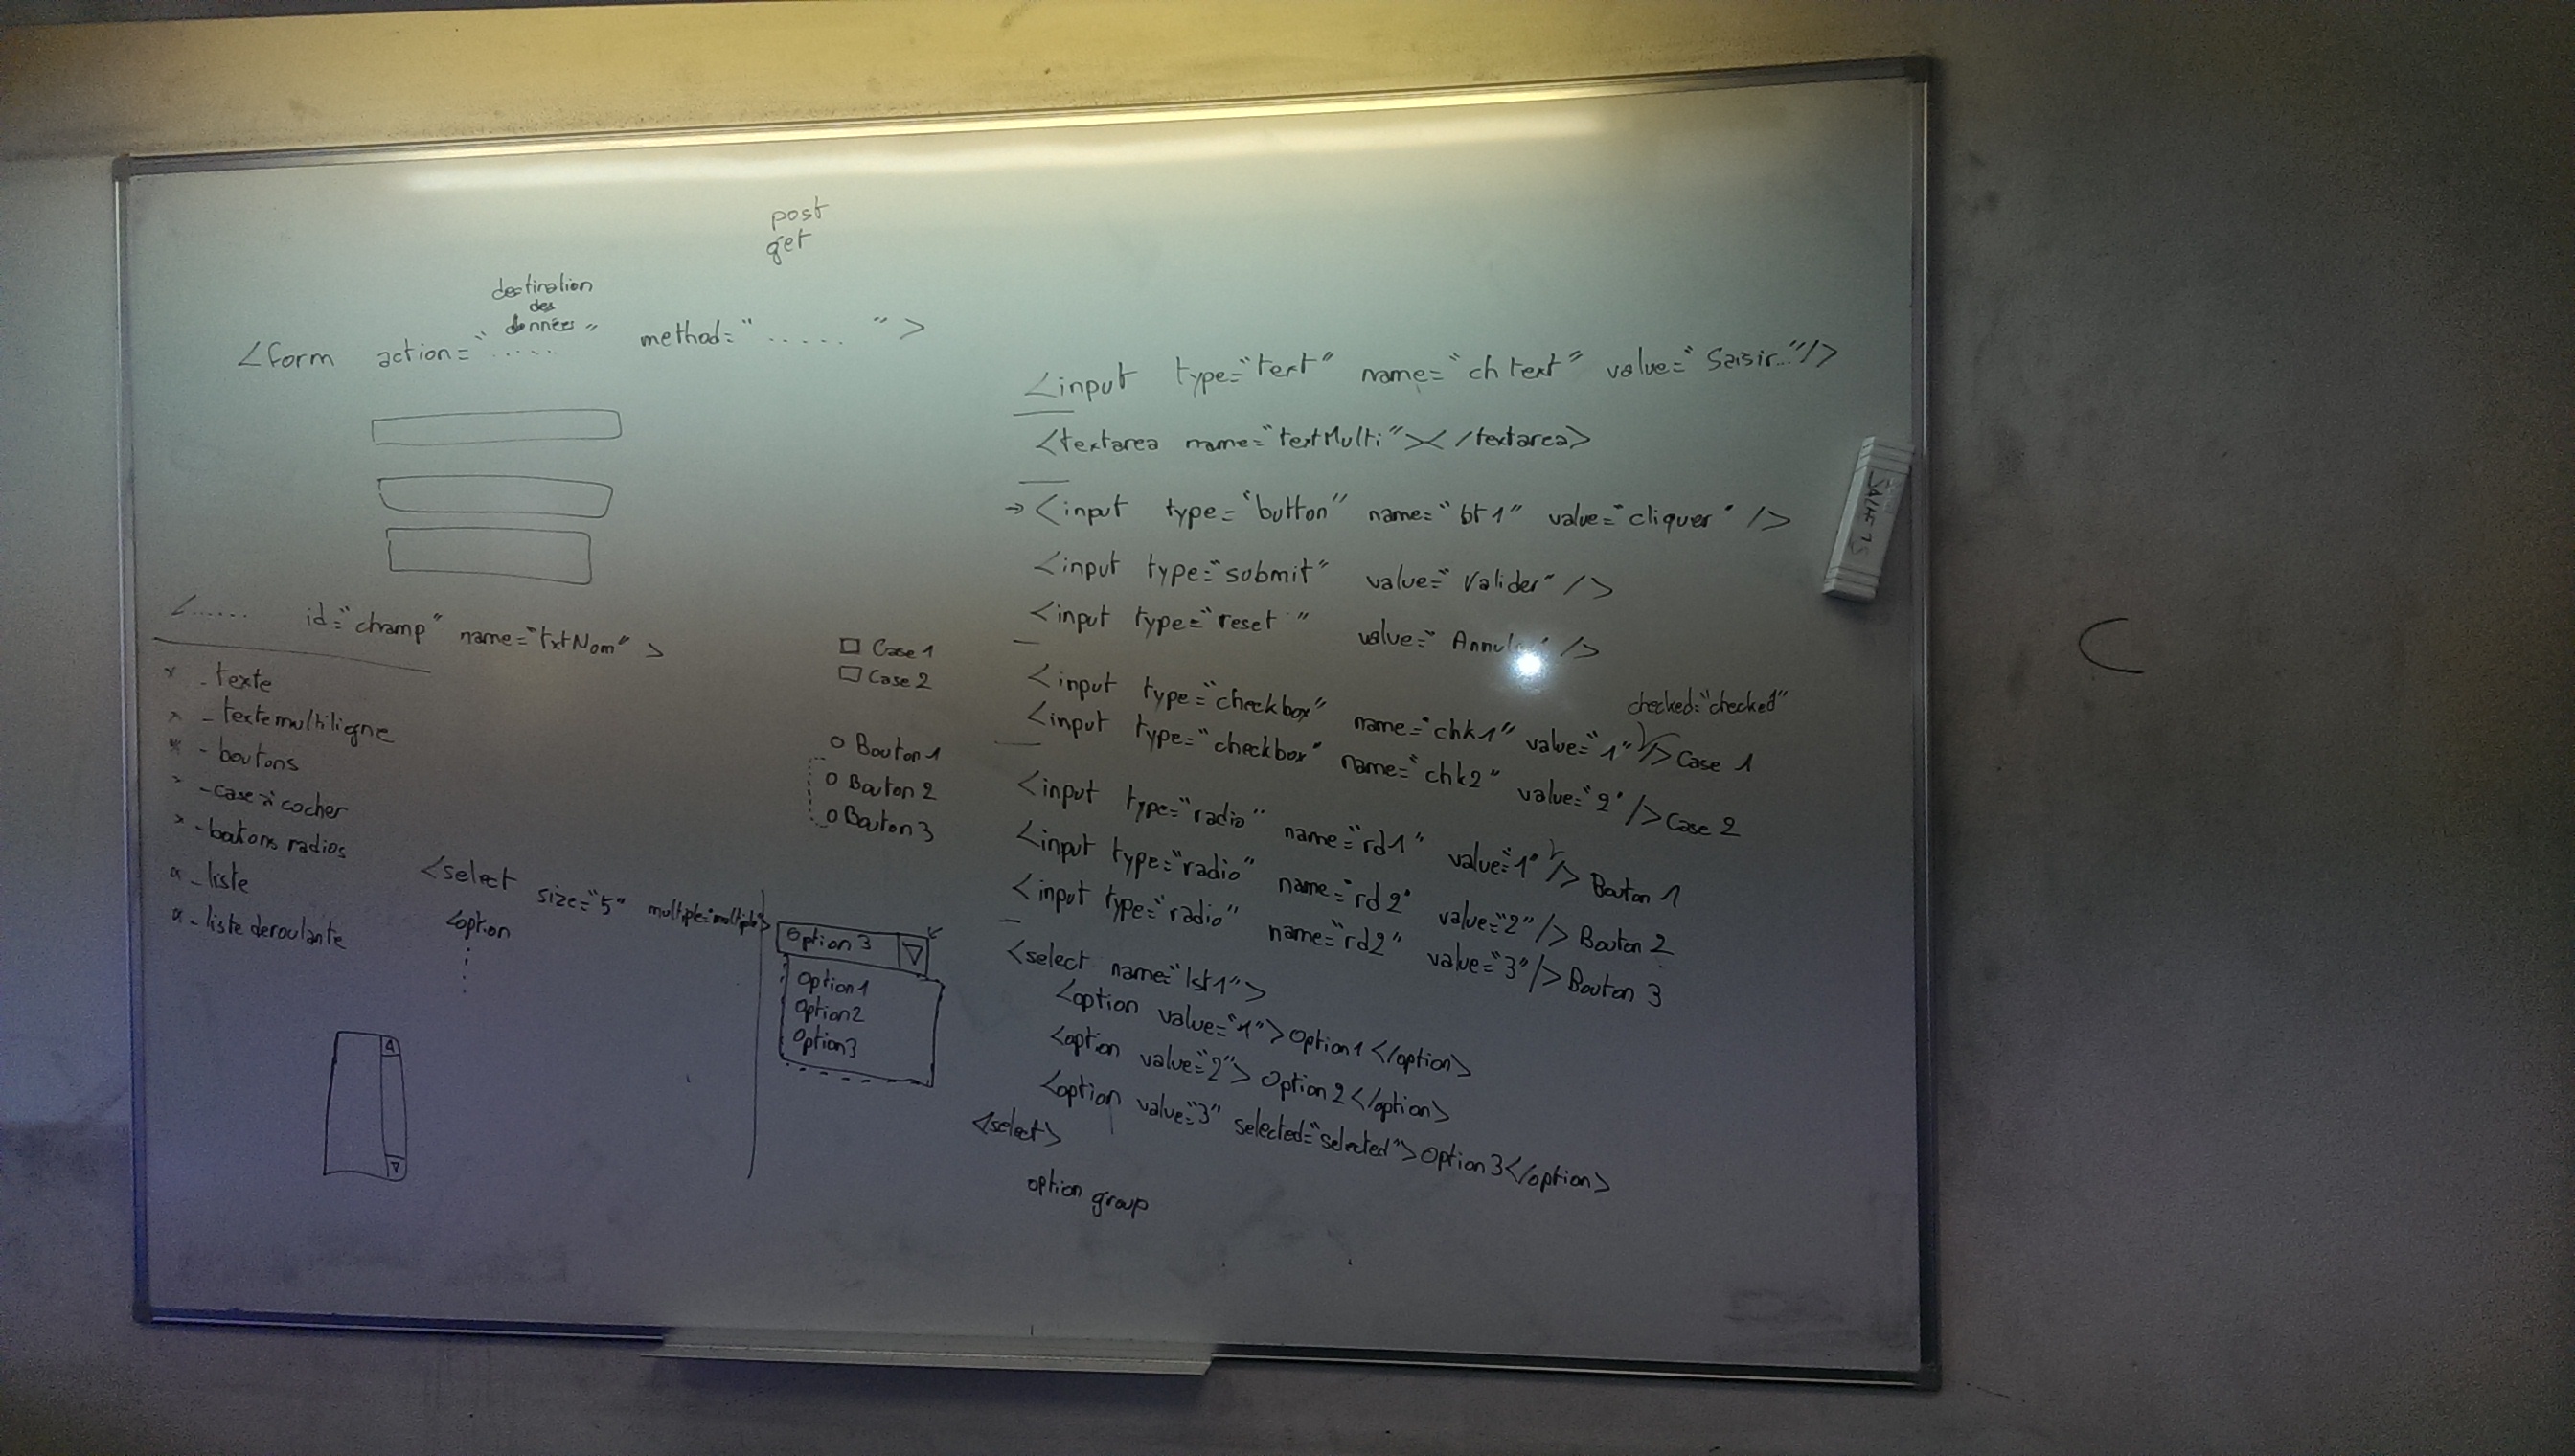 post
get
destination
des
données
<form action="....." method="....." >
<...... id="champ" name="txtNom" >
- texte
- texte multiligne
- boutons
- case à cocher
- boutons radios
- liste
- liste deroulante
<select size="5" multiple="multiple">
<option
Case 1
Case 2
Bouton 1
Bouton 2
Bouton 3
Option 3
Option1
Option2
Option3
<input type="text" name="ch text" value="Saisir..."/>
<textarea name="textMulti"></textarea>
→ <input type="button" name="bt1" value="cliquer" />
<input type="submit" value="Valider" />
<input type="reset" value=" />
checked="checked"
<input type="checkbox" name="chk1" value="1" /> Case 1
<input type="checkbox" name="chk2" value="2" /> Case 2
<input type="radio" name="rd1" value="1" /> Bouton 1
<input type="radio" name="rd2" value="2" /> Bouton 2
<input type="radio" name="rd2" value="3"/> Bouton 3
<select name="lst1">
<option value="1">Option1 </option>
<option value="2"> Option 2 </option>
<option value="3" selected="selected"> Option 3 </option>
</select>
option group